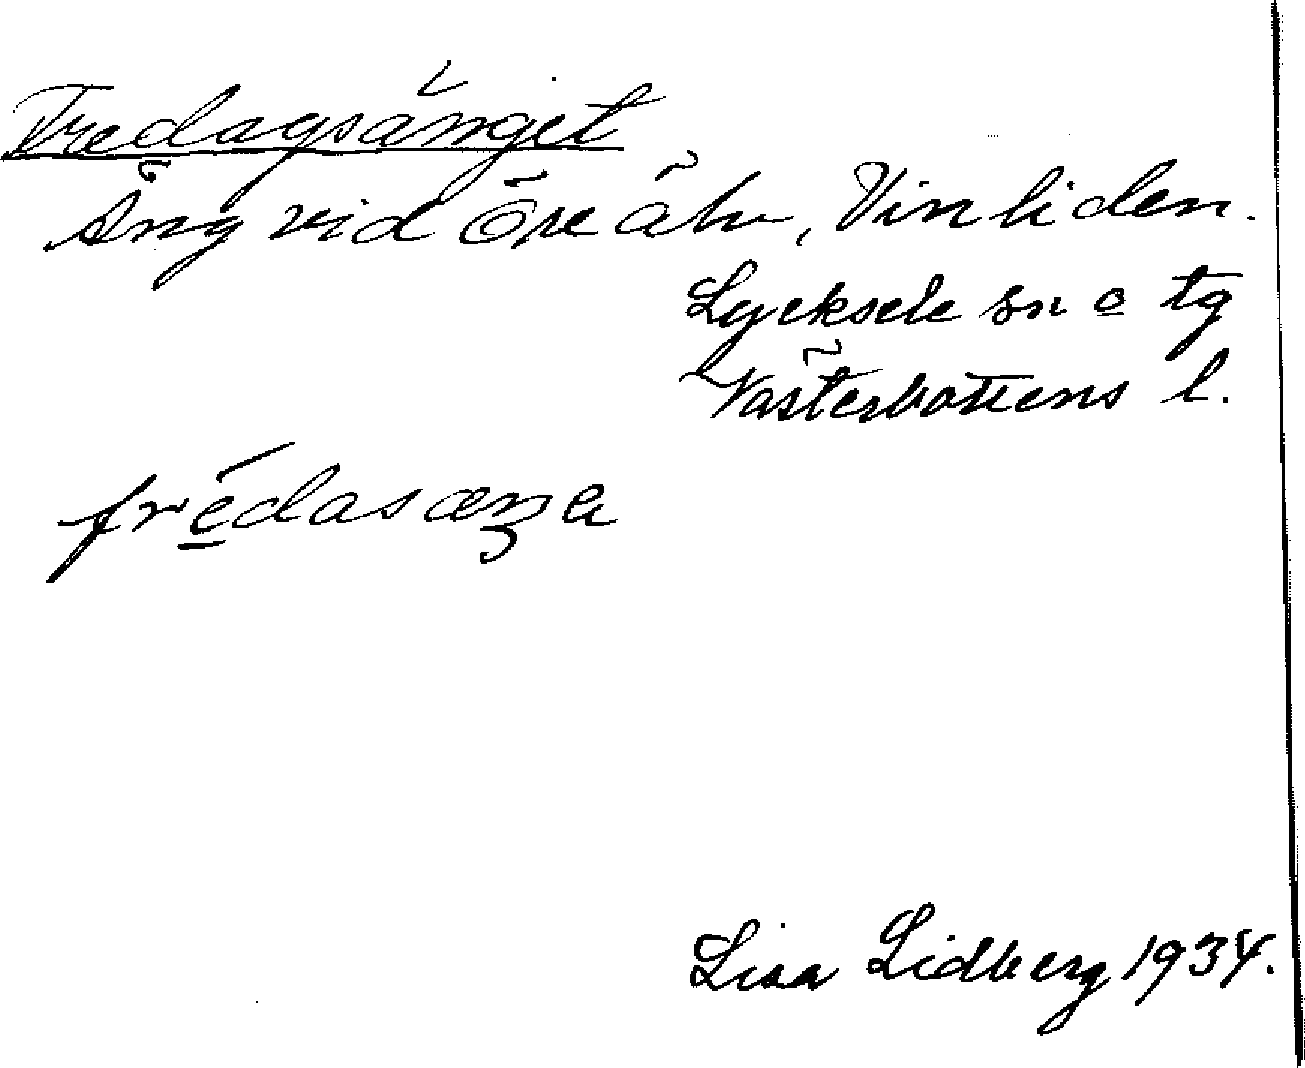 Fredagsänget
Äng vid Öre älv, Vinliden.
Lycksele sn o tg
Västerbottens l.
frēdasæŋa
Lisa Lidberg 1934.